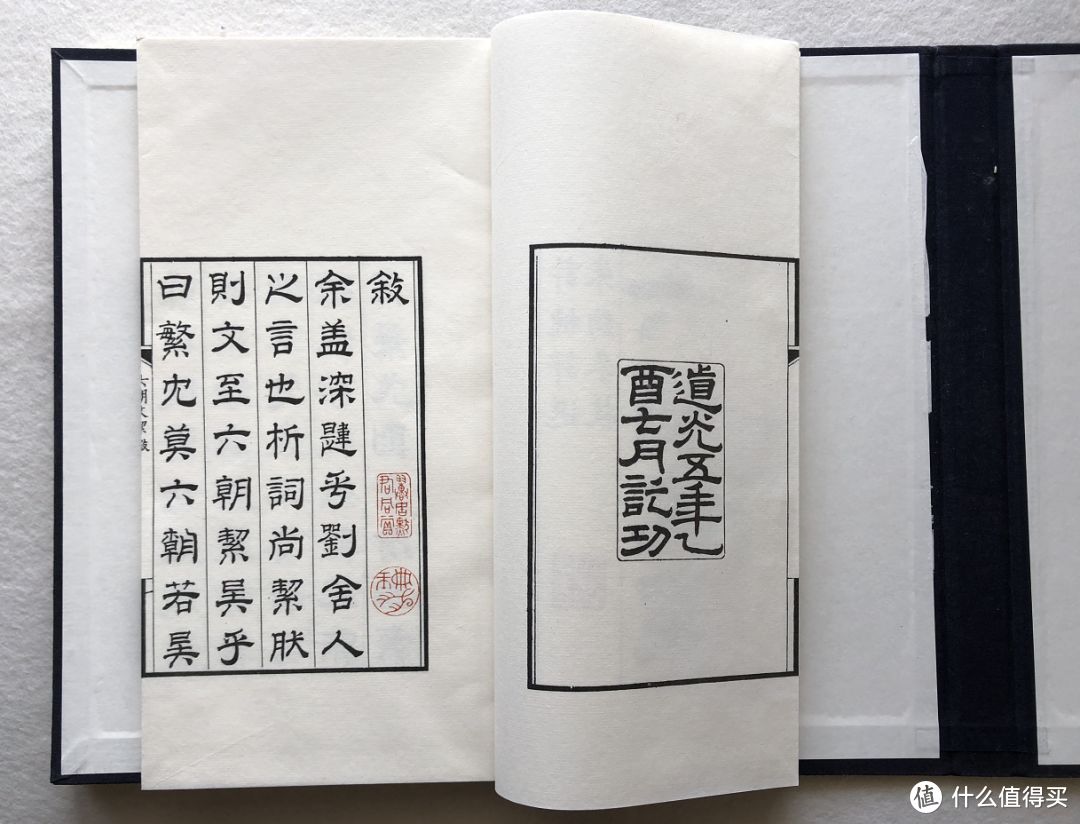 道光五年乙
酉七月訖功
敘
余盖深韙乎劉舍人
之言也析詞尚絜肰
則文至六朝絜矣乎
曰繁冘莫六朝若矣
六朝文絜敘
值 什么值得买